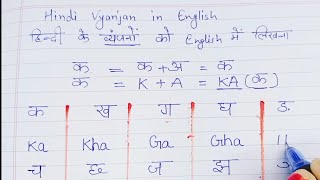 Hindi Vyanjan in English
हिन्दी के व्यंजनों को English में लिखना
क = क + अ = क
क = K + A = KA (क)
क ख ग घ ङ
Ka Kha Ga Gha
च छ ज झ